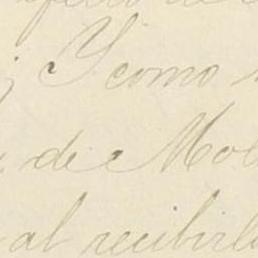 Y como
de Mol
al recibirlo